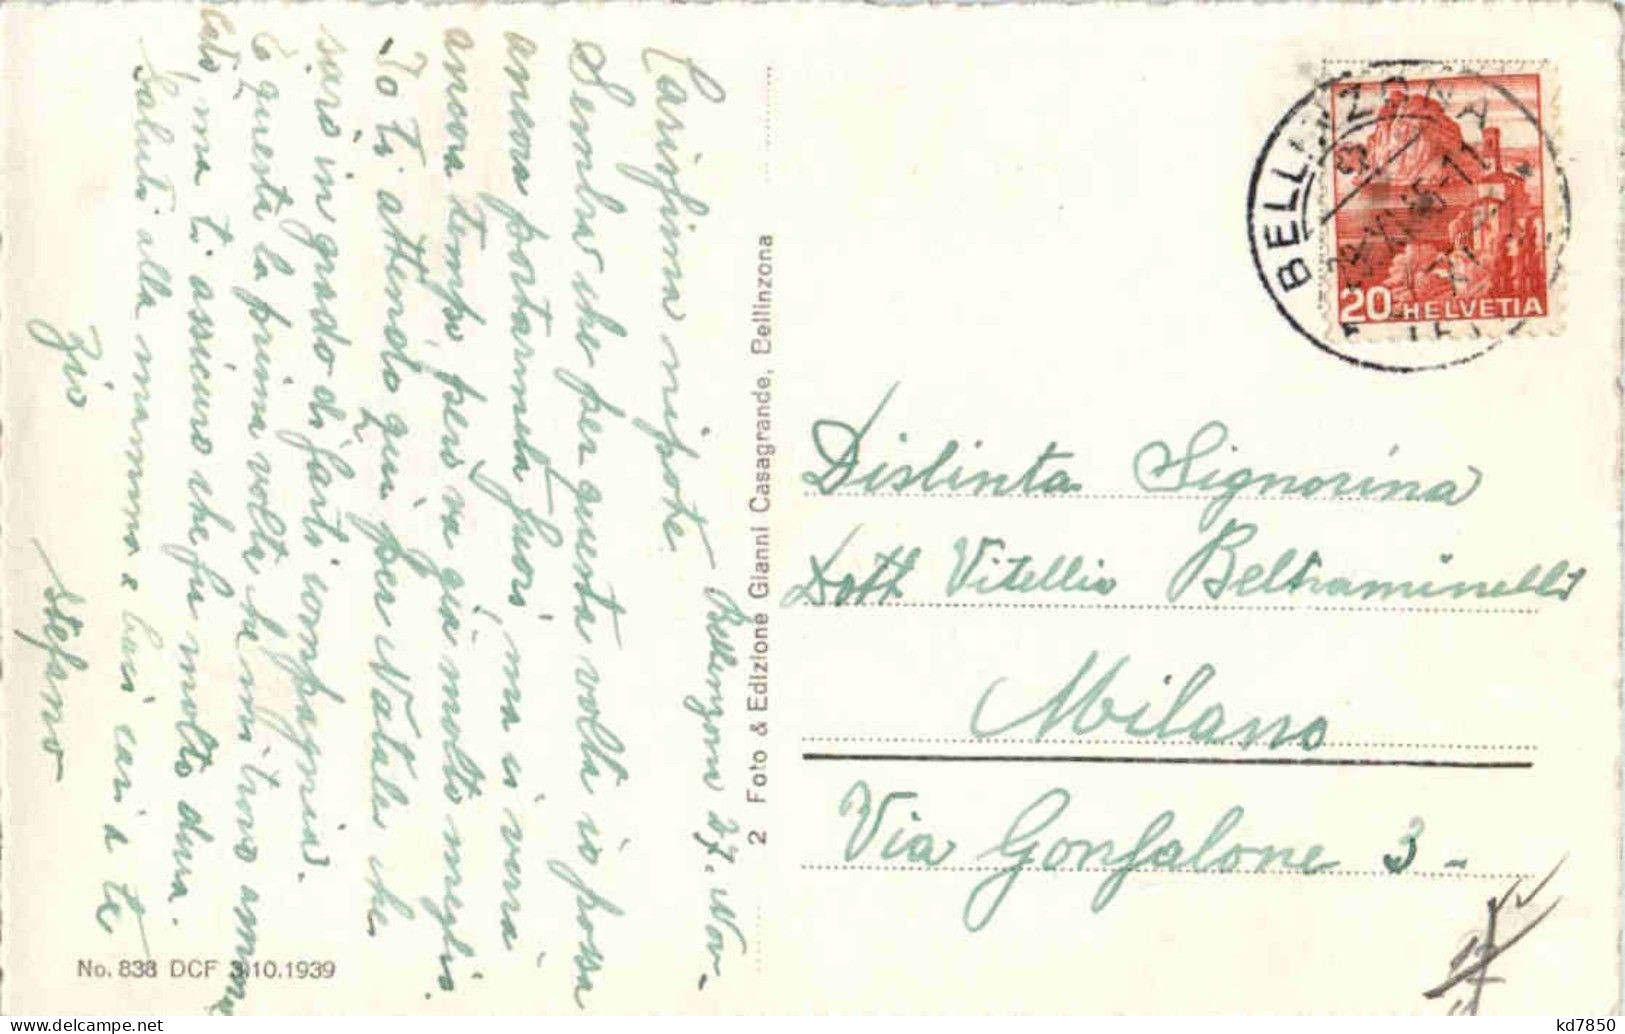 Bellinzona 27. Nov-
Carissima nipote.
Sembra che per questa volta io possa
ancora portarmela fuori, ma ci vorrà
ancora tempo, però va già molto meglio.
Io ti attendo qui per Natale che
sarò in grado di farti compagnia.
È questa la prima volta che mi trovo amma-
lato, ma ti assicuro che fu molto dura.
Saluti alla mamma e baci cari a te
Zio
Stefano
2 Foto & Edizione Gianni Casagrande, Bellinzona
No. 838 DCF 3.10.1939
BELLINZONA
20 HELVETIA
Distinta Signorina
Dott Vitellia Beltraminelli
Milano
Via Gonfalone 3 -
kd7850